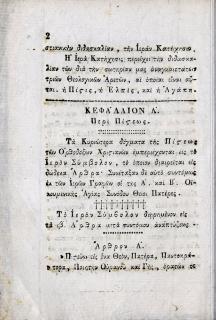 2
στιανικὴν διδασκαλίαν, τὴν Ἱερὰν Κατήχησιν.
Ἡ Ἱερὰ Κατήχησις περιέχει τὴν διδασκαλίαν τῶν διὰ τὴν σωτηρίαν μας ἀναγκαιοτάτων
τριῶν Θεολογικῶν Ἀρετῶν, αἱ ὁποῖαι εἶναι αὗται.
ἡ Πίστις, ἡ Ἐλπὶς, καὶ ἡ Ἀγάπη.
ΚΕΦΑΛΑΙΟΝ Α΄.
Περὶ Πίστεως.
Τὰ Κυριώτερα δόγματα τῆς Πίστεως
τῶν Ὀρθοδόξων Χριστιανῶν ἐμπεριέχονται εἰς τὸ
Ἱερὸν Σύμβολον, τὸ ὁποῖον διαιρεῖται εἰς
δώδεκα Ἄρθρα. Συνέταξαν δὲ αὐτὸ συντόμως
ἐκ τῶν Ἱερῶν Γραφῶν αἱ τῆς Α΄. καὶ Β΄. Οἰκουμενικῆς
Ἁγίας Συνόδου Θεῖοι Πατέρες.
Τὸ Ἱερὸν Σύμβολον διῃρημένον εἰς
τὰ ιβ΄. Ἄρθρα μετὰ συντόμου ἀναπτύξεως.
Ἄρθρον Α΄.
Πιστεύω εἰς ἕνα Θεὸν, Πατέρα, Παντοκράτορα,
Ποιητὴν Οὐρανοῦ καὶ Γῆς, ὁρατῶν τε